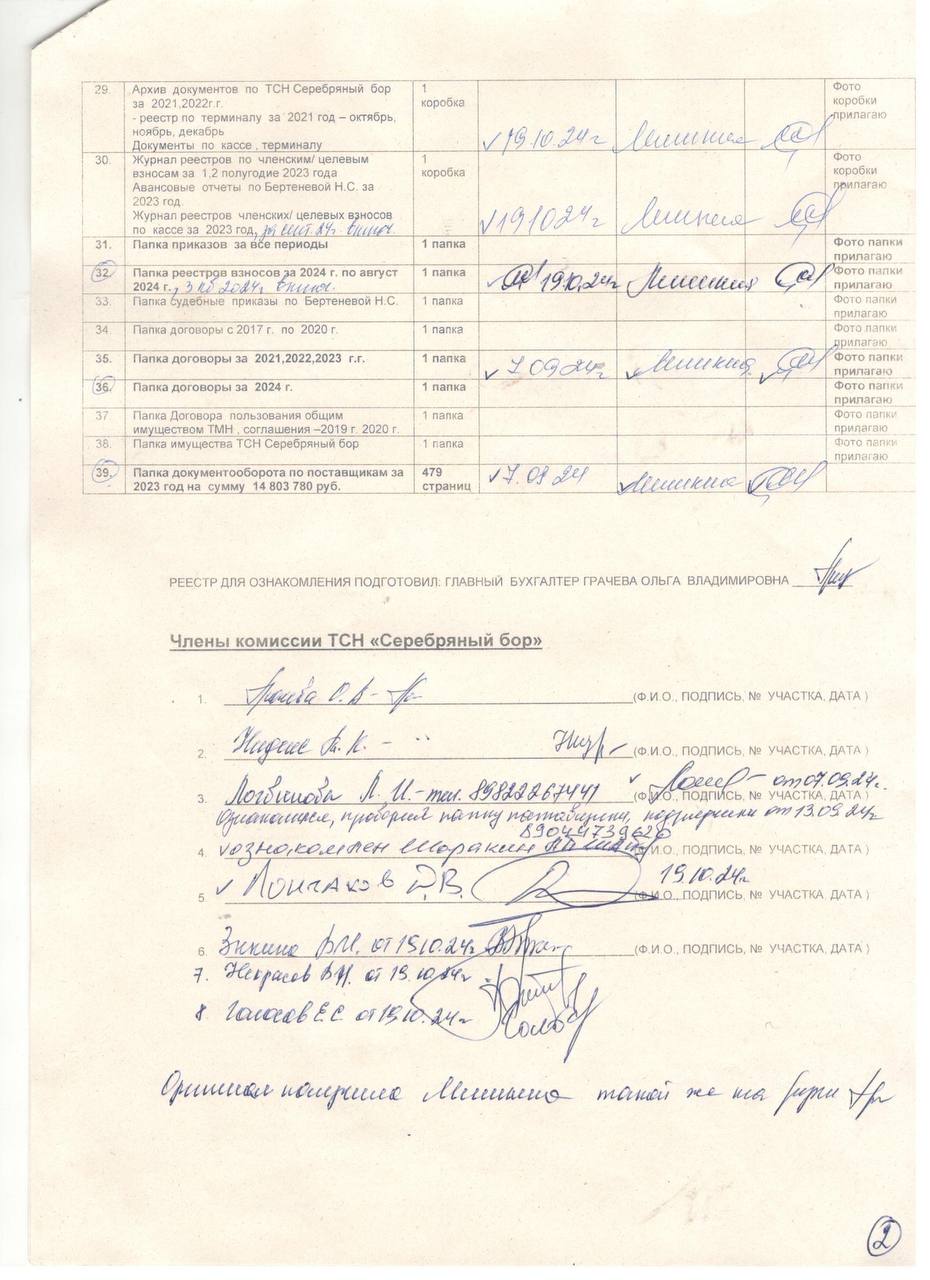 29. Архив документов по ТСН Серебряный бор 1 Фото
за 2021,2022г.г. коробка коробки
- реестр по терминалу за 2021 год – октябрь, прилагаю
ноябрь, декабрь
Документы по кассе , терминалу 19.10.24г Мишкина
30. Журнал реестров по членским/ целевым 1 Фото
взносам за 1,2 полугодие 2023 года коробка коробки
Авансовые отчеты по Бертеневой Н.С. за прилагаю
2023 год.
Журнал реестров членских/ целевых взносов 191024г Мишкина
по кассе за 2023 год, за сент. 24г. включ.
31. Папка приказов за все периоды 1 папка Фото папки
прилагаю
32. Папка реестров взносов за 2024 г. по август 1 папка 19.10.24г Мишкина Фото папки
2024 г., 3 кв 2024г включ. прилагаю
33. Папка судебные приказы по Бертеневой Н.С. 1 папка Фото папки
прилагаю
34. Папка договоры с 2017 г. по 2020 г. 1 папка Фото папки
прилагаю
35. Папка договоры за 2021,2022,2023 г.г. 1 папка 7.09.24г Мишкина Фото папки
прилагаю
36. Папка договоры за 2024 г. 1 папка Фото папки
прилагаю
37 Папка Договора пользования общим 1 папка Фото папки
имуществом ТМН , соглашения –2019 г. 2020 г. прилагаю
38. Папка имущества ТСН Серебряный бор 1 папка Фото папки
прилагаю
39. Папка документооборота по поставщикам за 479 7.09.24 Мишкина
2023 год на сумму 14 803 780 руб. страниц
РЕЕСТР ДЛЯ ОЗНАКОМЛЕНИЯ ПОДГОТОВИЛ: ГЛАВНЫЙ БУХГАЛТЕР ГРАЧЕВА ОЛЬГА ВЛАДИМИРОВНА
Члены комиссии ТСН «Серебряный бор»
1. О.В - (Ф.И.О., ПОДПИСЬ, № УЧАСТКА, ДАТА )
2. - (Ф.И.О., ПОДПИСЬ, № УЧАСТКА, ДАТА )
3. Л. И. - тел. 89822267441 от 07.09.24г. (Ф.И.О., ПОДПИСЬ, № УЧАСТКА, ДАТА )
проверил папку поставщики, подрядчики от 13.09.24г
89044739626
4. ознакомлен Шаракин (Ф.И.О., ПОДПИСЬ, № УЧАСТКА, ДАТА )
19.10.24г
5. Мончаков Д.В. (Ф.И.О., ПОДПИСЬ, № УЧАСТКА, ДАТА )
6. Зинкина В.И. от 19.10.24г (Ф.И.О., ПОДПИСЬ, № УЧАСТКА, ДАТА )
7. Некрасов В.И. от 19.10.24г
8. Голосов Е.С. от 19.10.24г
Оригинал получила Мишкина такой же на руки
2